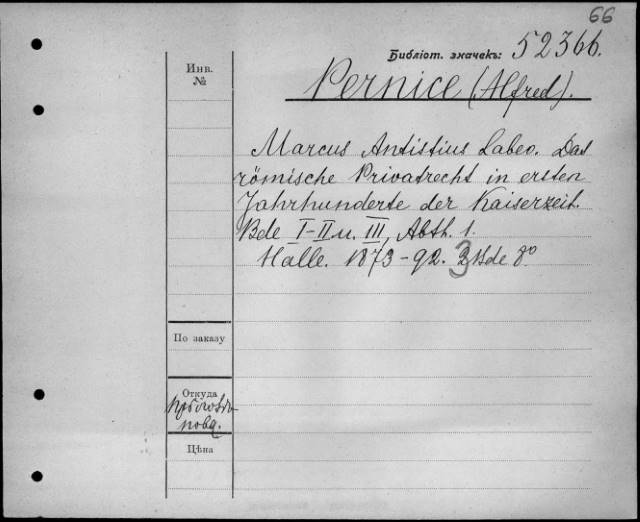 66
Библіот. значекъ: 52366.
Инв.
№
Pernice (Alfred).
Marcus Antistius Labeo. Das
römische Privatrecht in ersten
Jahrhunderte der Kaiserzeit.
Bde I-II u. III, Abth. 1.
Halle. 1873-92. 3 Bde 8º
По заказу
Откуда
Цѣна